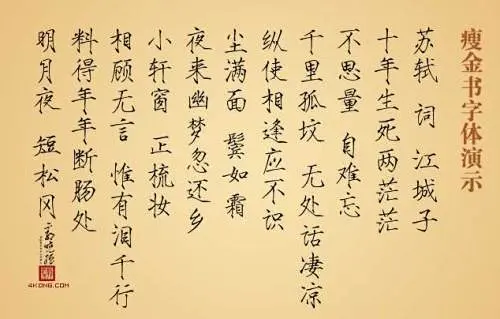 瘦金书字体演示
苏轼 词 江城子
十年生死两茫茫
不思量 自难忘
千里孤坟 无处话凄凉
纵使相逢应不识
尘满面 鬓如霜
夜来幽梦忽还乡
小轩窗 正梳妆
相顾无言 惟有泪千行
料得年年断肠处
明月夜 短松冈
4KONG.COM